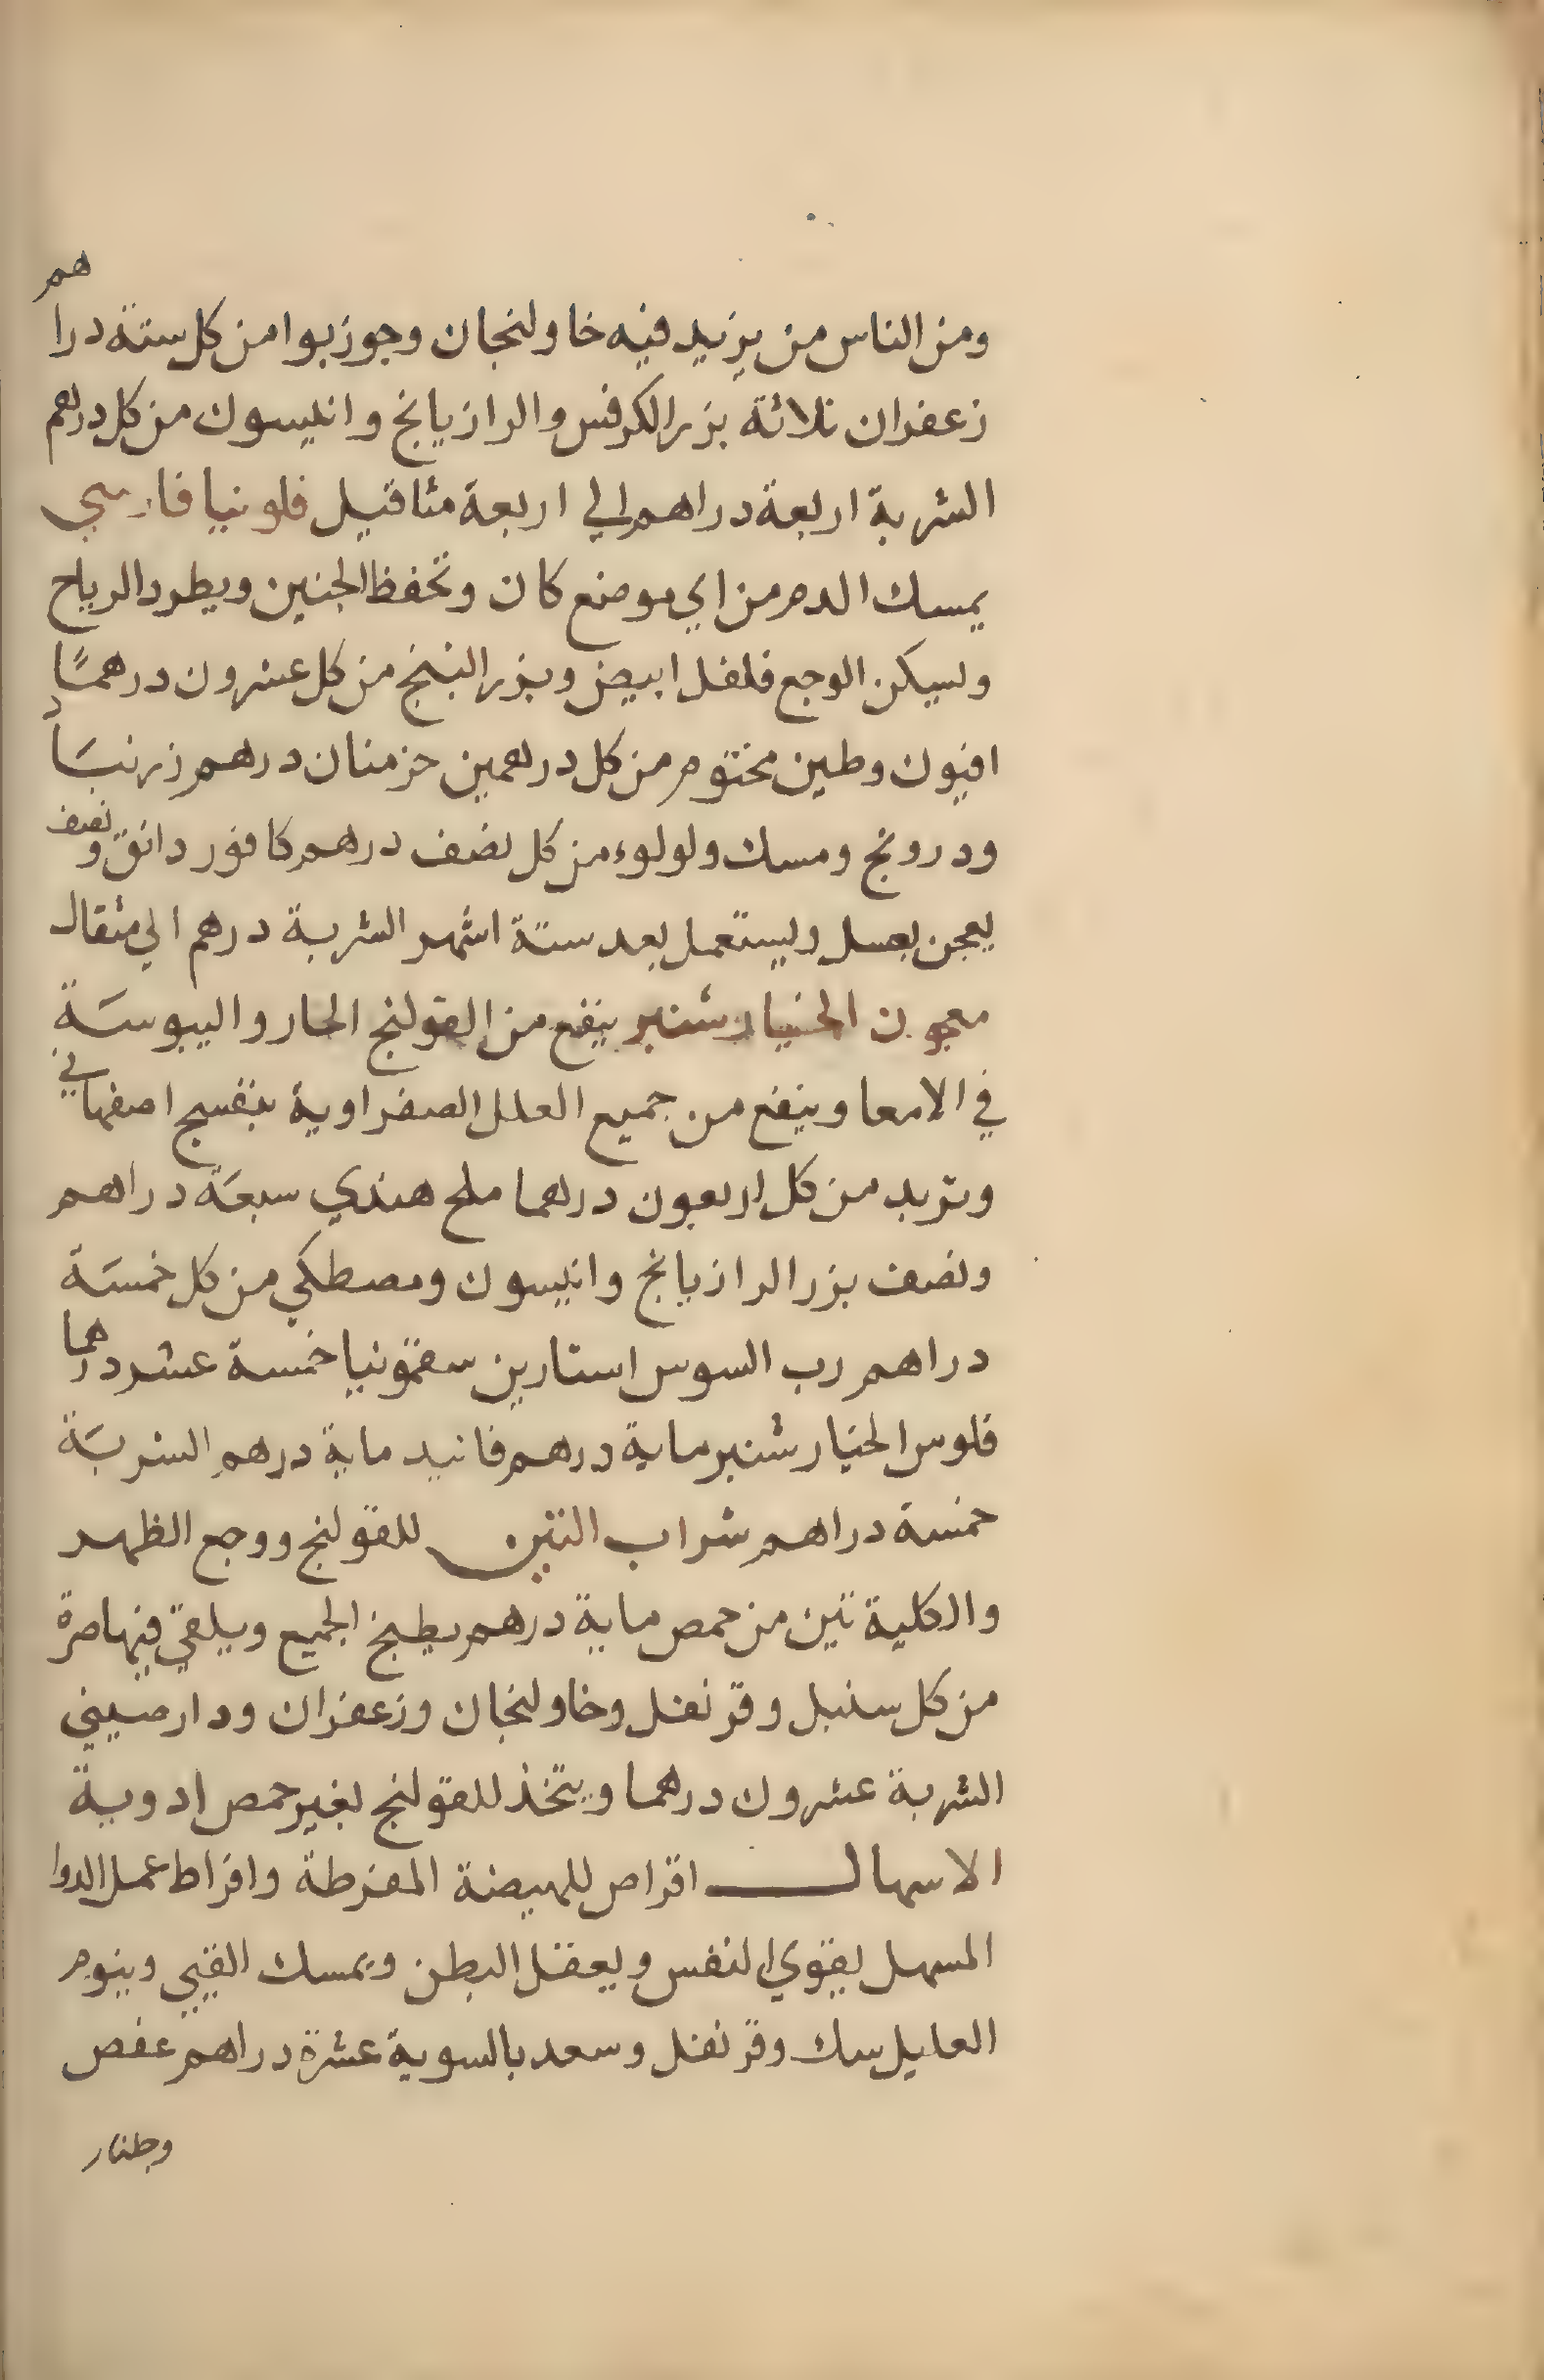 ومن الناس من يزيد فيه خاولنجان وجوزبوا من كل ستة دراهم
زعفران ثلاثة بزر الكرفس والرازيانج وانيسون من كل درهم
الشربة اربعة دراهم الي اربعة مثاقيل فلونيا فارسي
يمسك الدم من اي موضع كان وتحفظ الجنين ويطرد الرياح
ويسكن الوجع فلفل ابيض وبزر البنج من كل عشرون درهمًا
افيون وطين مختوم من كل درهمين خزمنان درهم زرنبَاد
ودرونج ومسك ولولوء من كل نصف درهم كافور دانق ونصف
يعجن بعسل ويستعمل بعد ستة اشهر الشربة درهم الي مثقال
معجون الخيارشنبر ينفع من القولنج الحار واليبوسَة
في الامعا وينفع من جميع العلل الصفراوية بنفسج اصفهاني
وتربد من كل اربعون درهما ملح هندي سبعَة دراهم
ونصف بزر الرازيانج وانيسون ومصطكي من كل خمسَة
دراهم رب السوس استارين سقمونيا خمسة عشر درهما
فلوس الخيارشنبر ماية درهم فانيد ماية درهم الشربَة
خمسة دراهم شراب التين للقولنج ووجع الظهر
والكلية تين من حمص ماية درهم يطبخ الجميع ويلقي فيها صرة
من كل سنبل وقرنفل وخاولنجان وزعفران ودارصيني
الشربة عشرون درهما ويتخذ للقولنج بغير حمص ادوية
الاسهال اقراص للهيضة المفرطة وافراط عمل الدوا
المسهل يقوي النفس ويعقل البطن ويمسك القيي وينوم
العليل سك وقرنفل وسعد بالسوية عشرة دراهم عفص
وجلنار